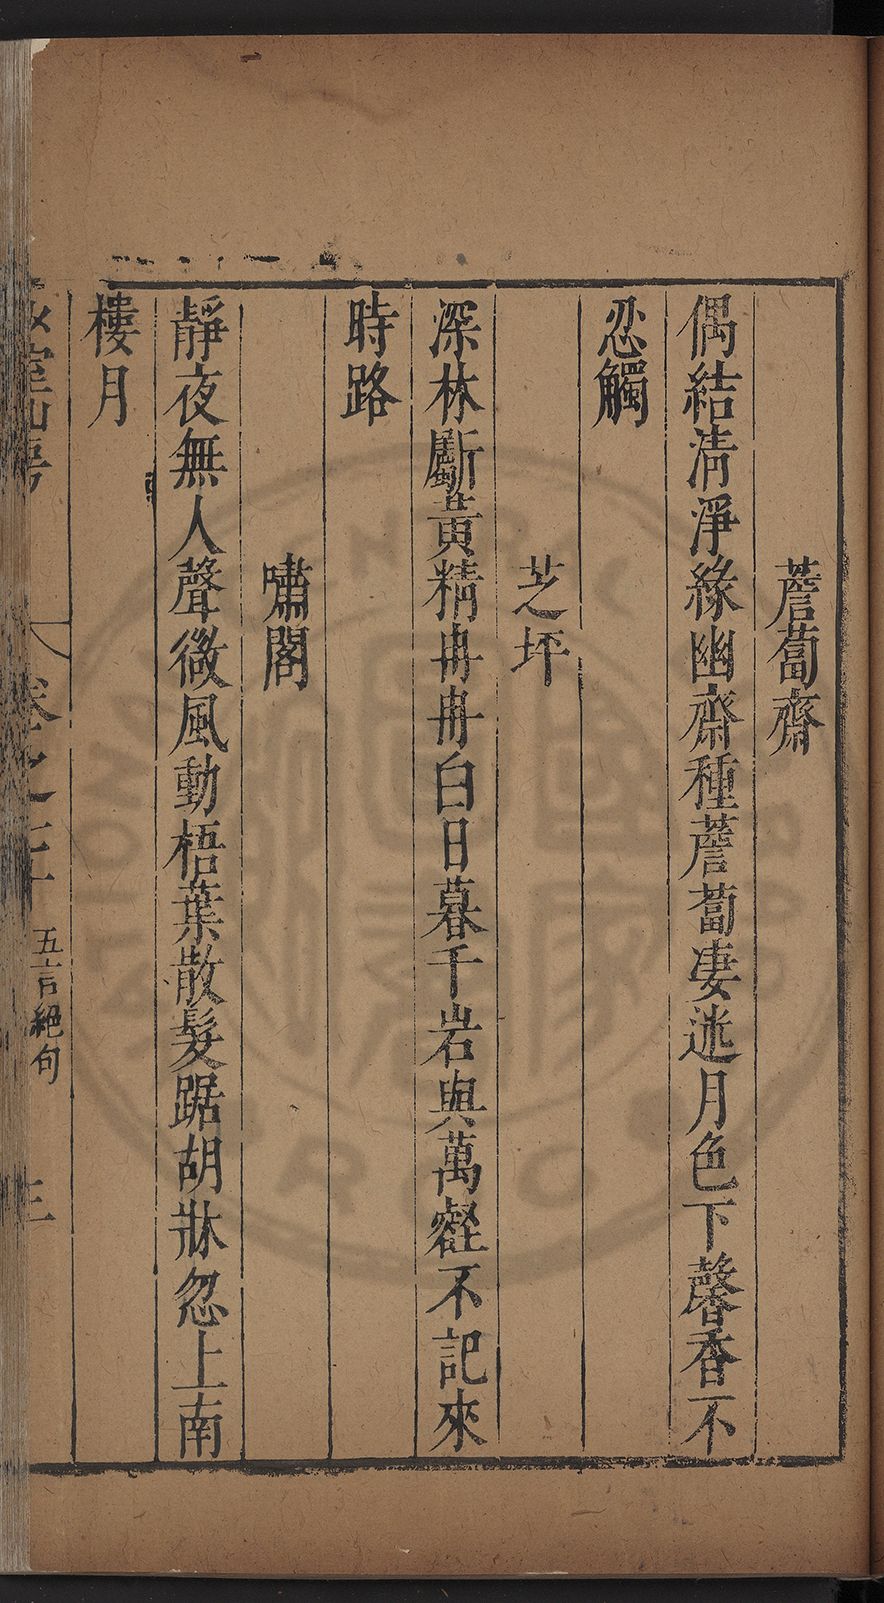 薝蔔齋
偶結清淨緣幽齋種薝蔔凄迷月色下馨香不
忍觸
芝坪
深林斸黃精冉冉白日暮千岩與萬壑不記來
時路
嘯閣
靜夜無人聲微風動梧葉散髮踞胡牀忽上南
樓月
卷之二十 五言絕句 三